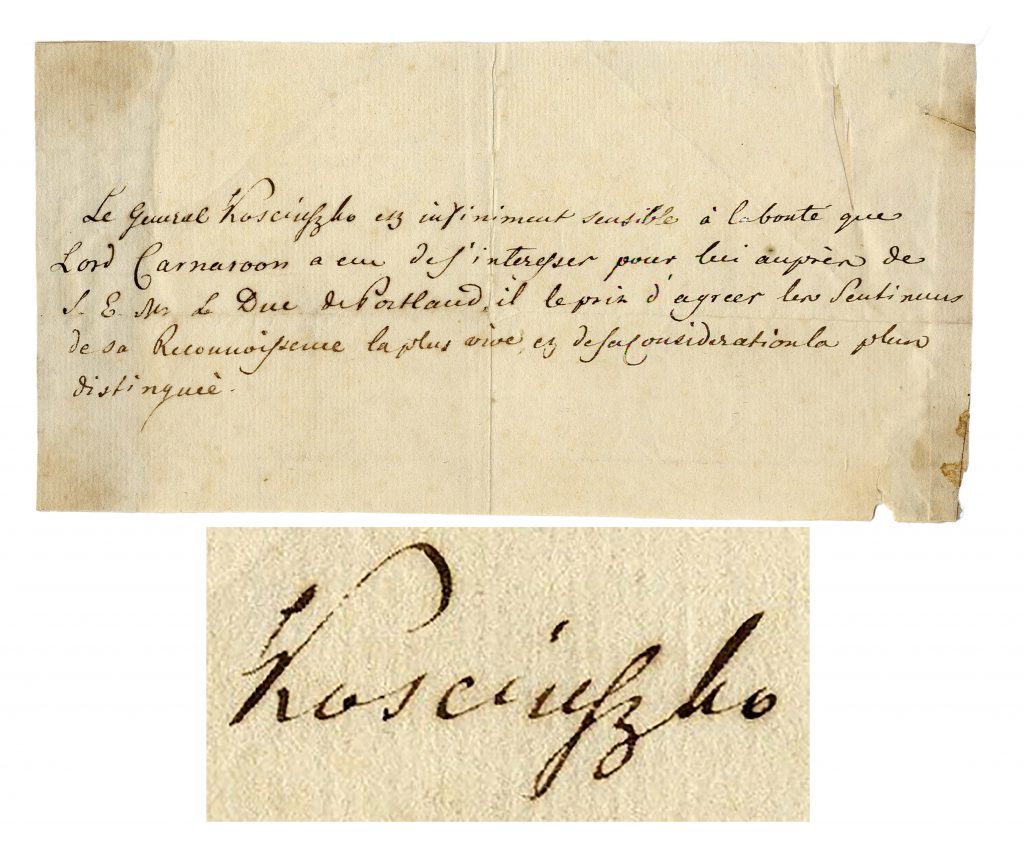 Le General Kosciuszko est infiniment sensible à la bonté que
Lord Carnarvon a eue de s'interesser pour lui auprès de
S. E. Mr Le Duc de Portland, il le prie d'agreer les Sentimens
de sa Reconnoissence la plus vive, et de sa Consideration la plus
distinguée.
Kosciuszko